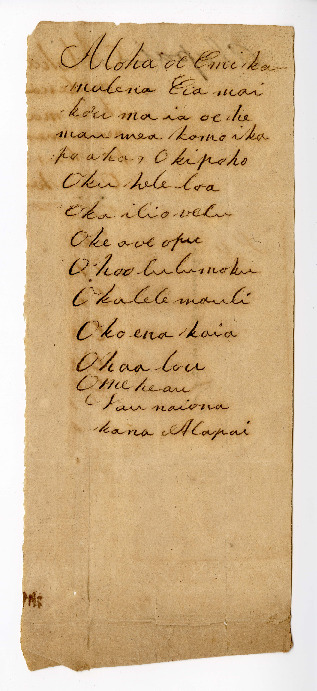 Aloha oe Emeika
mulena Eia mai
kou ma ia oe he
mau mea komo ika
pa aha, O kipoho
Oku hele loa
Oka ilio velu
Oke ove opu
O hoolulumoku
Okalele mauli
Oko ena kaia
Ohaa lou
Ome heau
Nau naiona
kana Alapai